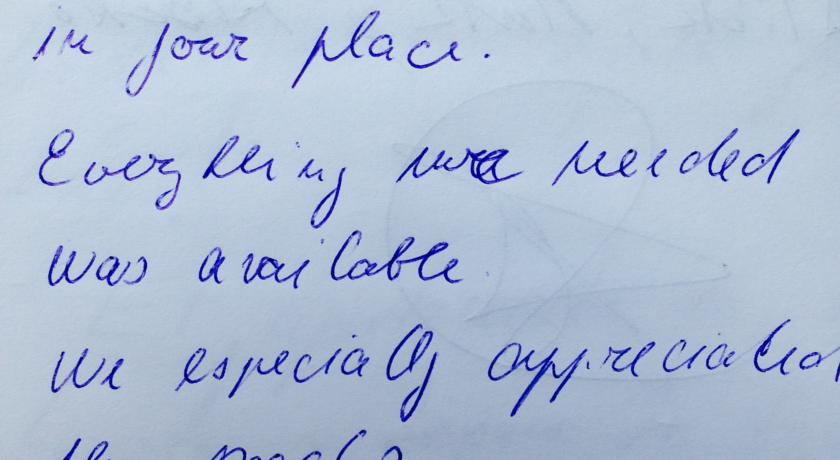 in your place.
Everything we needed
was available.
We especially appreciated
the